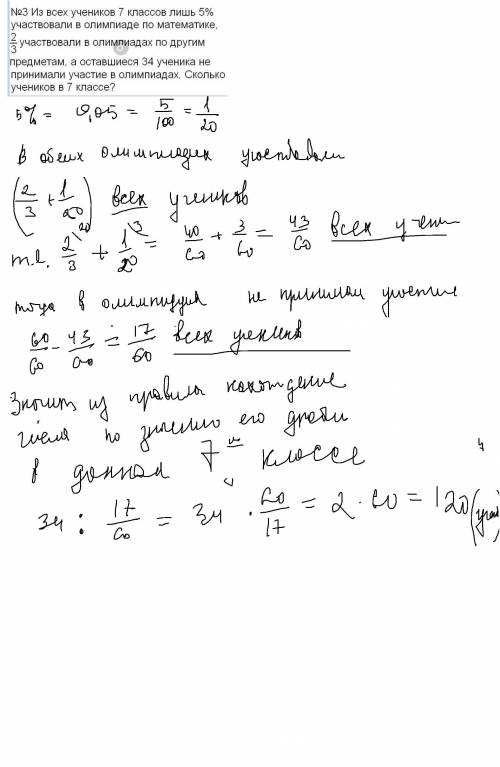 №3 Из всех учеников 7 классов лишь 5%
участвовали в олимпиаде по математике,
2/3 участвовали в олимпиадах по другим
предметам, а оставшиеся 34 ученика не
принимали участие в олимпиадах. Сколько
учеников в 7 классе?
5% = 0,05 = 5/100 = 1/20
В обеих олимпиадах участвовали
(2/3 + 1/20) всех учеников
т.е. 2/3 + 1/20 = 40/60 + 3/60 = 43/60 всех учен
тогда в олимпиадах не принимали участие
60/60 - 43/60 = 17/60 всех учеников
Значит из правила нахождение
числа по значению его дроби
в данном 7 классе
34 : 17/60 = 34 · 60/17 = 2 · 60 = 120 (учен)